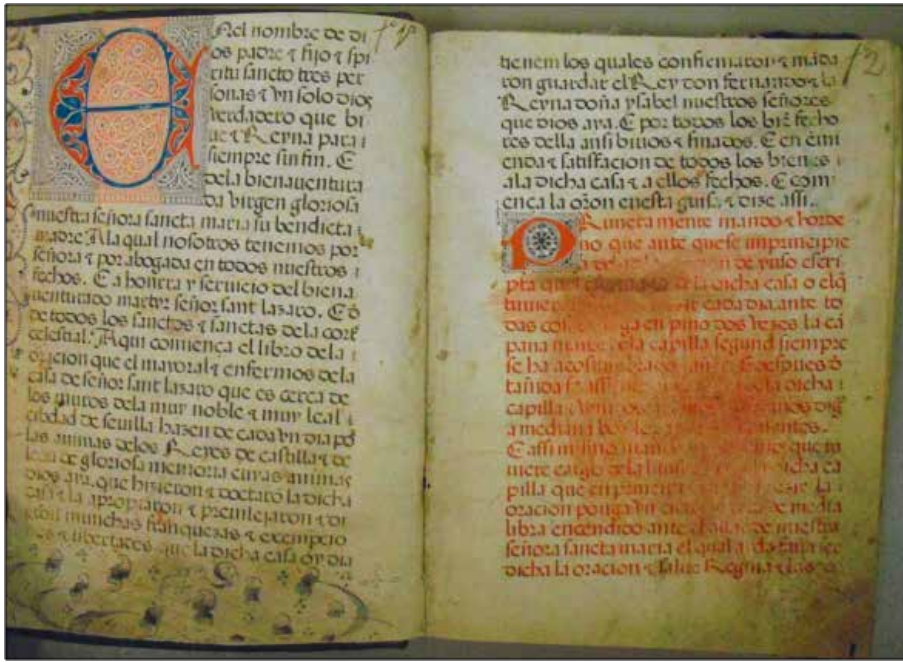 En el nombre de di
os padre ⁊ fijo ⁊ spi
ritu sancto tres per
sonas ⁊ vn solo dios
verdadero que bi
ue ⁊ Reyna para
siempre sin fin. E
dela bienauentura
da virgen gloriosa
nuestra señora sancta maria su bendicta
madre Ala qual nosotros tenemos por
señora ⁊ por abogada en todos nuestros
fechos. E a honrra y seruicio del biena
uenturado martyr señor sant lazaro. E d
de todos los sanctos ⁊ sanctas dela cort
celestial. Aqui comiença el libro dela
oracion que el mayoral ⁊ enfermos dela
casa de señor sant lazaro que es cerca de
los muros dela muy noble ⁊ muy leal
ciudad de seuilla hazen de cada vn dia por
las animas delos Reyes de castilla ⁊ de
leon de gloriosa memoria cuyas animas
dios aya, que hizieron ⁊ doctaro la dicha
casa ⁊ la apropiaron ⁊ preuilejaron ⁊ di
munchas franquezas ⁊ exempcio
⁊ libertades que la dicha casa oy dia
12
tienem los quales confirmaron ⁊ māda
ron guardar el Rey don fernando ⁊ la
Reyna doña ysabel nuestros señores
que dios aya. E por todos los biē fecho
res della ansi biuos ⁊ finados. E en emi
enda ⁊ satisfacion de todos los bienes
ala dicha casa ⁊ a ellos fechos. E com
ença la oraon enesta guisa. ⁊ dize assi.
Primera mente mando ⁊ horde
no que ante que se imprincipie
de yuso escri
pta que dela dicha casa o el q̄
tuuiere cada dia ante to
das cosas en pino dos vezes la cā
pana la capilla segund siempre
se ha acostumbrado E despues d
tañida la dicha
capilla
a media
E assi mismo que tu
uiere cargo dela dicha ca
pilla que en la
oracion ponga vn de media
libra encendido ante el altar de nuestra
señora sancta maria el qual
dicha la oracion ⁊ salue Regina ⁊ las